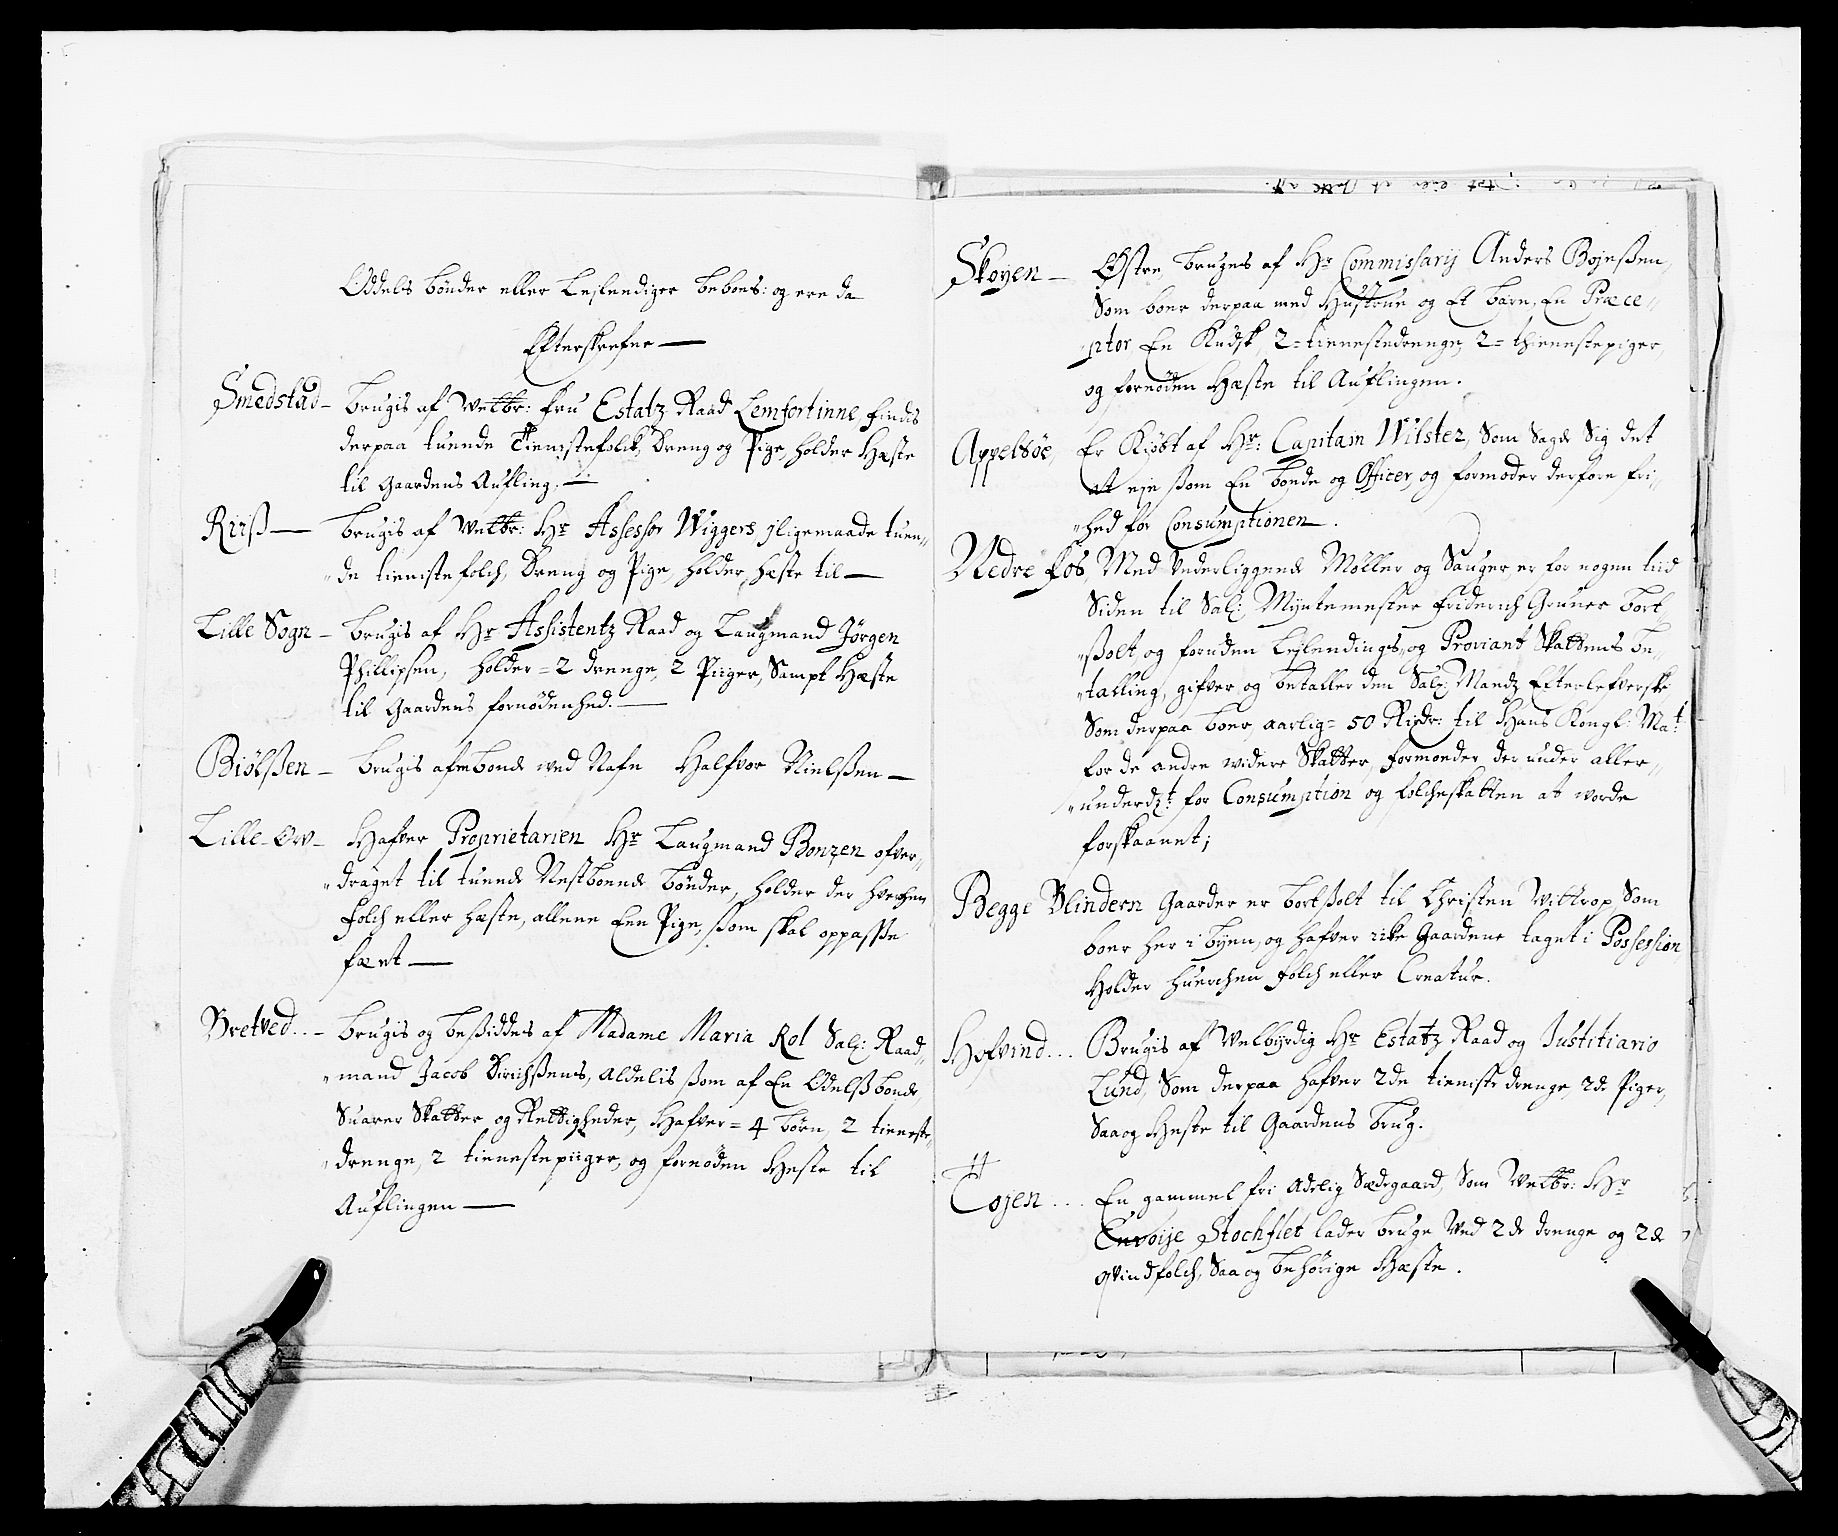 Oddels bønder eller Leylendiger beboes: og ere da
Efterskrefne —
Smedstad - brugis af Welbr: fru Estatz Raad Lemfortinne, findis
derpaa tuende Tienistefolck, Dreng og Pige, holder Hæste
til Gaardens Aufling. —
Riiß — brugis af Welbr: Hr Assessor Wiggers, jligemaade tuen„
„de tieniste folch, Dreng og Pige, holder hæste til —
Lille Sogn - brugis af Hr Assistentz Raad og Laugmand Jørgen
Phillipsen, holder = 2 drenge, 2 Piiger, Sampt Hæste
til Gaardens fornødenhed. —
Biølßen - brugis af en bonde ved Nafn Halfvor Nielßen —
Lille - Ow - Hafver Proprietarien Hr Laugmand Bonzen ofver„
„draget til tuende Nestboende bønder, holder der hverchen
folch eller hæste, allene Een Pige, ßom skal oppasse
fæet —
Bretved.. - brugis og beßiddes af Madame Maria Rol Sal: Raad„
„mand Jacob Dirichßens, aldelis ßom af En Odelß bonde,
Suarer Skatter og Rettigheder, Hafver = 4 børn, 2 tieneste„
„drenge, 2 tienestepiiger, og fornøden Heste til
Auflingen —
Skoyen - Østre, bruges af Hr Commissarij Anders Bojeßen,
Som boer derpaa med Hustrue og Et barn, En Præce„
„ptor En Kudsk, 2 = tienestedrenge, 2 = thienestepiger,
og fornøden Hæste til Auflingen.
Appelsøe, Er Kiøbt af Hr: Capitain Wilster, Som Sagde Sig det
at eje ßom En bonde og Officer, og formoder derfore fri„
„hed for Consumptionen.
Nedre fos, Med underliggende Møller og Sauger, er for nogen tiid
Siden til Sal: Myntemester Friderich Gruner bort„
„ßolt og foruden Leylendings, og Proviant Skattens be„
„talling, gifver og betaller den Sal: Mandz Efterlefverske
Som derpaa boer, aarlig = 50 Rixdr: til Hans Kongl: Mat:
for de andre widere Skatter, formoder der under aller„
„underdt: for Consumption og folcheskatten at worde
forskaanet;
Begge Blindern Gaarder er bortßolt til Christen Wittrop, Som
boer her i byen, og hafver icke Gaardene taget i Possession
Holder huerchen folch eller Creatur.
Hofvind... Brugis af Welbyrdig Hr Estatz Raad og Justitiario
Lund, Som derpaa hafver 2de tieniste drenge, 2de Piger,
Saa og Heste til Gaardens brug.
Tojen.... En gammel fri Adelig Sædegaard, Som Welbr: Hr
Envoije Stochflet lader bruge Ved 2de drenge og 2de
qvindfolch, Saa og behørige Hæste.